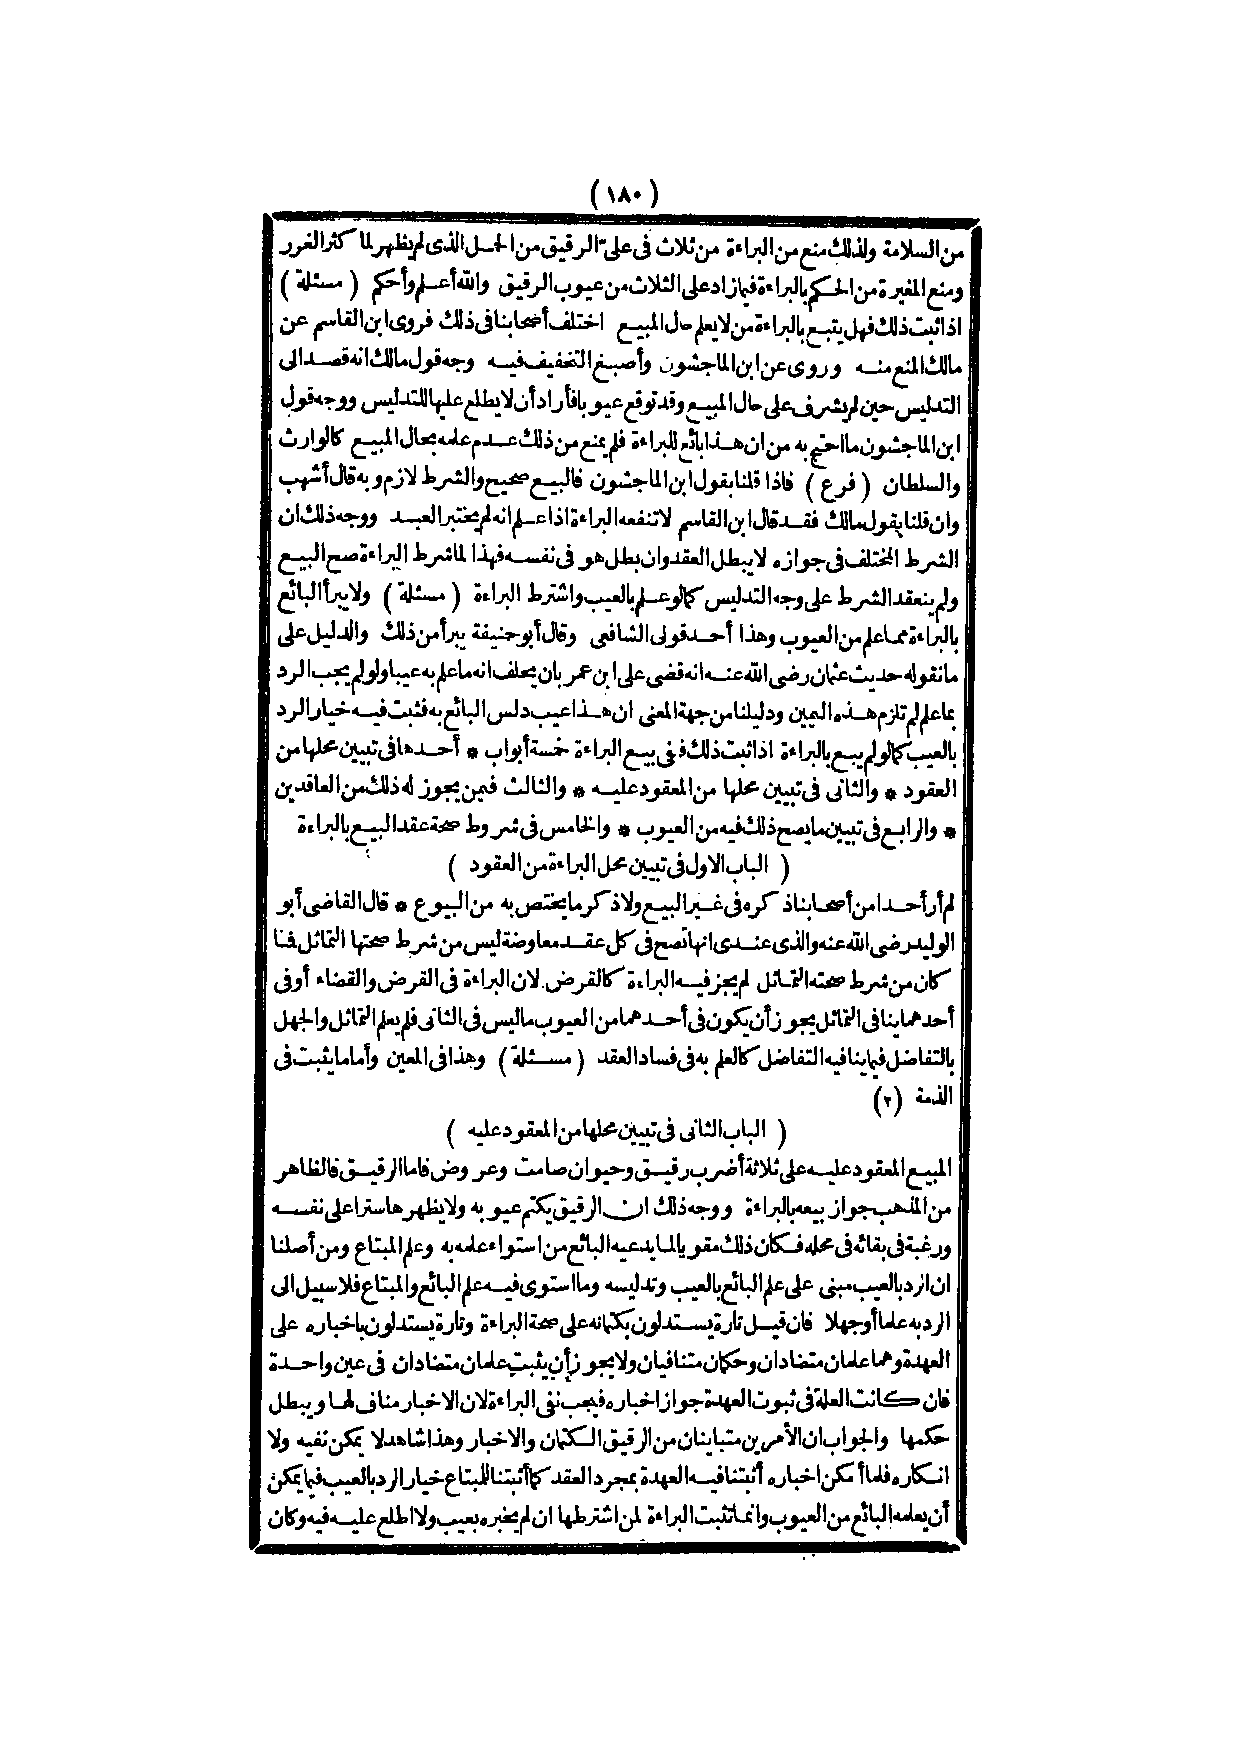 ( ١٨٠ )
من السلامة ولذلك منع من البراءة من ثلاث في على الرقيق من الحمل الذى لم يظهر لما كثر الغرر
ومنع المغيرة من الحكم بالبراءة فيما زاد على الثلاث من عيوب الرقيق والله أعلم وأحكم ( مسئلة )
اذا ثبت ذلك فهل يتبع بالبراءة من لا يعلم حال المبيع اختلف أصحابنا فى ذلك فروى ابن القاسم عن
مالك المنع منه وروى عن ابن الماجشون وأصبغ التخفيف فيه وجه قول مالك انه قصد الى
التدليس حين لم يشرف على حال المبيع وقد توقع عيوبا فأراد أن لا يطلع عليها للتدليس ووجه قول
ابن الماجشون ما احتج به من ان هذا بائع للبراءة فلم يمنع من ذلك عدم علمه بحال المبيع كالوارث
والسلطان ( فرع ) فاذا قلنا بقول ابن الماجشون فالبيع صحيح والشرط لازم وبه قال أشهب
وان قلنا بقول مالك فقد قال ابن القاسم لا تنفعه البراءة اذا علم انه لم يختبر العبد ووجه ذلك ان
الشرط المختلف فى جوازه لا يبطل العقد وان بطل هو فى نفسه فهذا لما شرط البراءة صح البيع
ولم ينعقد الشرط على وجه التدليس كما لو علم بالعيب واشترط البراءة ( مسئلة ) ولا يبرأ البائع
بالبراءة مما علم من العيوب وهذا أحد قولى الشافعى وقال أبو حنيفة يبرأ من ذلك والدليل على
ما نقوله حديث عثمان رضى الله عنه انه قضى على ابن عمر بان يحلف انه ما علم به عيبا ولو لم يجب الرد
بما علم لم تلزم هذه اليمين ودليلنا من جهة المعنى ان هذا عيب دلس البائع به فثبت فيه خيار الرد
بالعيب كما لو لم يبع بالبراءة اذا ثبت ذلك ففى بيع البراءة خمسة أبواب * أحدها فى تبيين محلها من
العقود * والثانى فى تبيين محلها من المعقود عليه * والثالث فيمن يجوز له ذلك من العاقدين
* والرابع فى تبيين ما يصح ذلك فيه من العيوب * والخامس فى شروط صحة عقد البيع بالبراءة
( الباب الاول فى تبيين محل البراءة من العقود )
لم أر أحدا من أصحابنا ذكره فى غير البيع ولا ذكر ما يختص به من البيوع * قال القاضى أبو
الوليد رضى الله عنه والذى عندى انها تصح فى كل عقد معاوضة ليس من شرط صحتها التماثل فما
كان من شرط صحته التماثل لم يجز فيه البراءة كالقرض لان البراءة فى القرض والقضاء أو فى
أحدهما ينافى التماثل يجوز أن يكون فى أحدهما من العيوب ما ليس فى الثانى فلم يعلم التماثل والجهل
بالتفاضل فيما ينافيه التفاضل كالعلم به فى فساد العقد ( مسئلة ) وهذا فى المعين وأما ما يثبت فى
الذمة (٢)
( الباب الثانى فى تبيين محلها من المعقود عليه )
المبيع المعقود عليه على ثلاثة أضرب رقيق وحيوان صامت وعروض فاما الرقيق فالظاهر
من المذهب جواز بيعه بالبراءة ووجه ذلك ان الرقيق يكتم عيوبه ولا يظهرها سترا على نفسه
ورغبة فى بقائه فى محله فكان ذلك مقويا لما يدعيه البائع من استواء علمه به وعلم المبتاع ومن أصلنا
ان الرد بالعيب مبنى على علم البائع بالعيب وتدليسه وما استوى فيه علم البائع والمبتاع فلا سبيل الى
الرد به علما أو جهلا فان قيل تارة يستدلون بكتمانه على صحة البراءة وتارة يستدلون باخباره على
العهدة وهما علمان متضادان وحكمان متنافيان ولا يجوز أن يثبت علمان متضادان فى عين واحدة
فان كانت العلة فى ثبوت العهدة جواز اخباره فيجب نفى البراءة لان الاخبار مناف لها ويبطل
حكمها والجواب ان الأمرين متباينان من الرقيق الكتمان والاخبار وهذا شاهد لا يمكن نفيه ولا
انكاره فلما أمكن اخباره أثبتنا فيه العهدة بمجرد العقد كما أثبتنا للمبتاع خيار الرد بالعيب فيما يمكن
أن يعلمه البائع من العيوب وانما تثبت البراءة لمن اشترطها ان لم يخبره بعيب ولا اطلع عليه فيه وكان